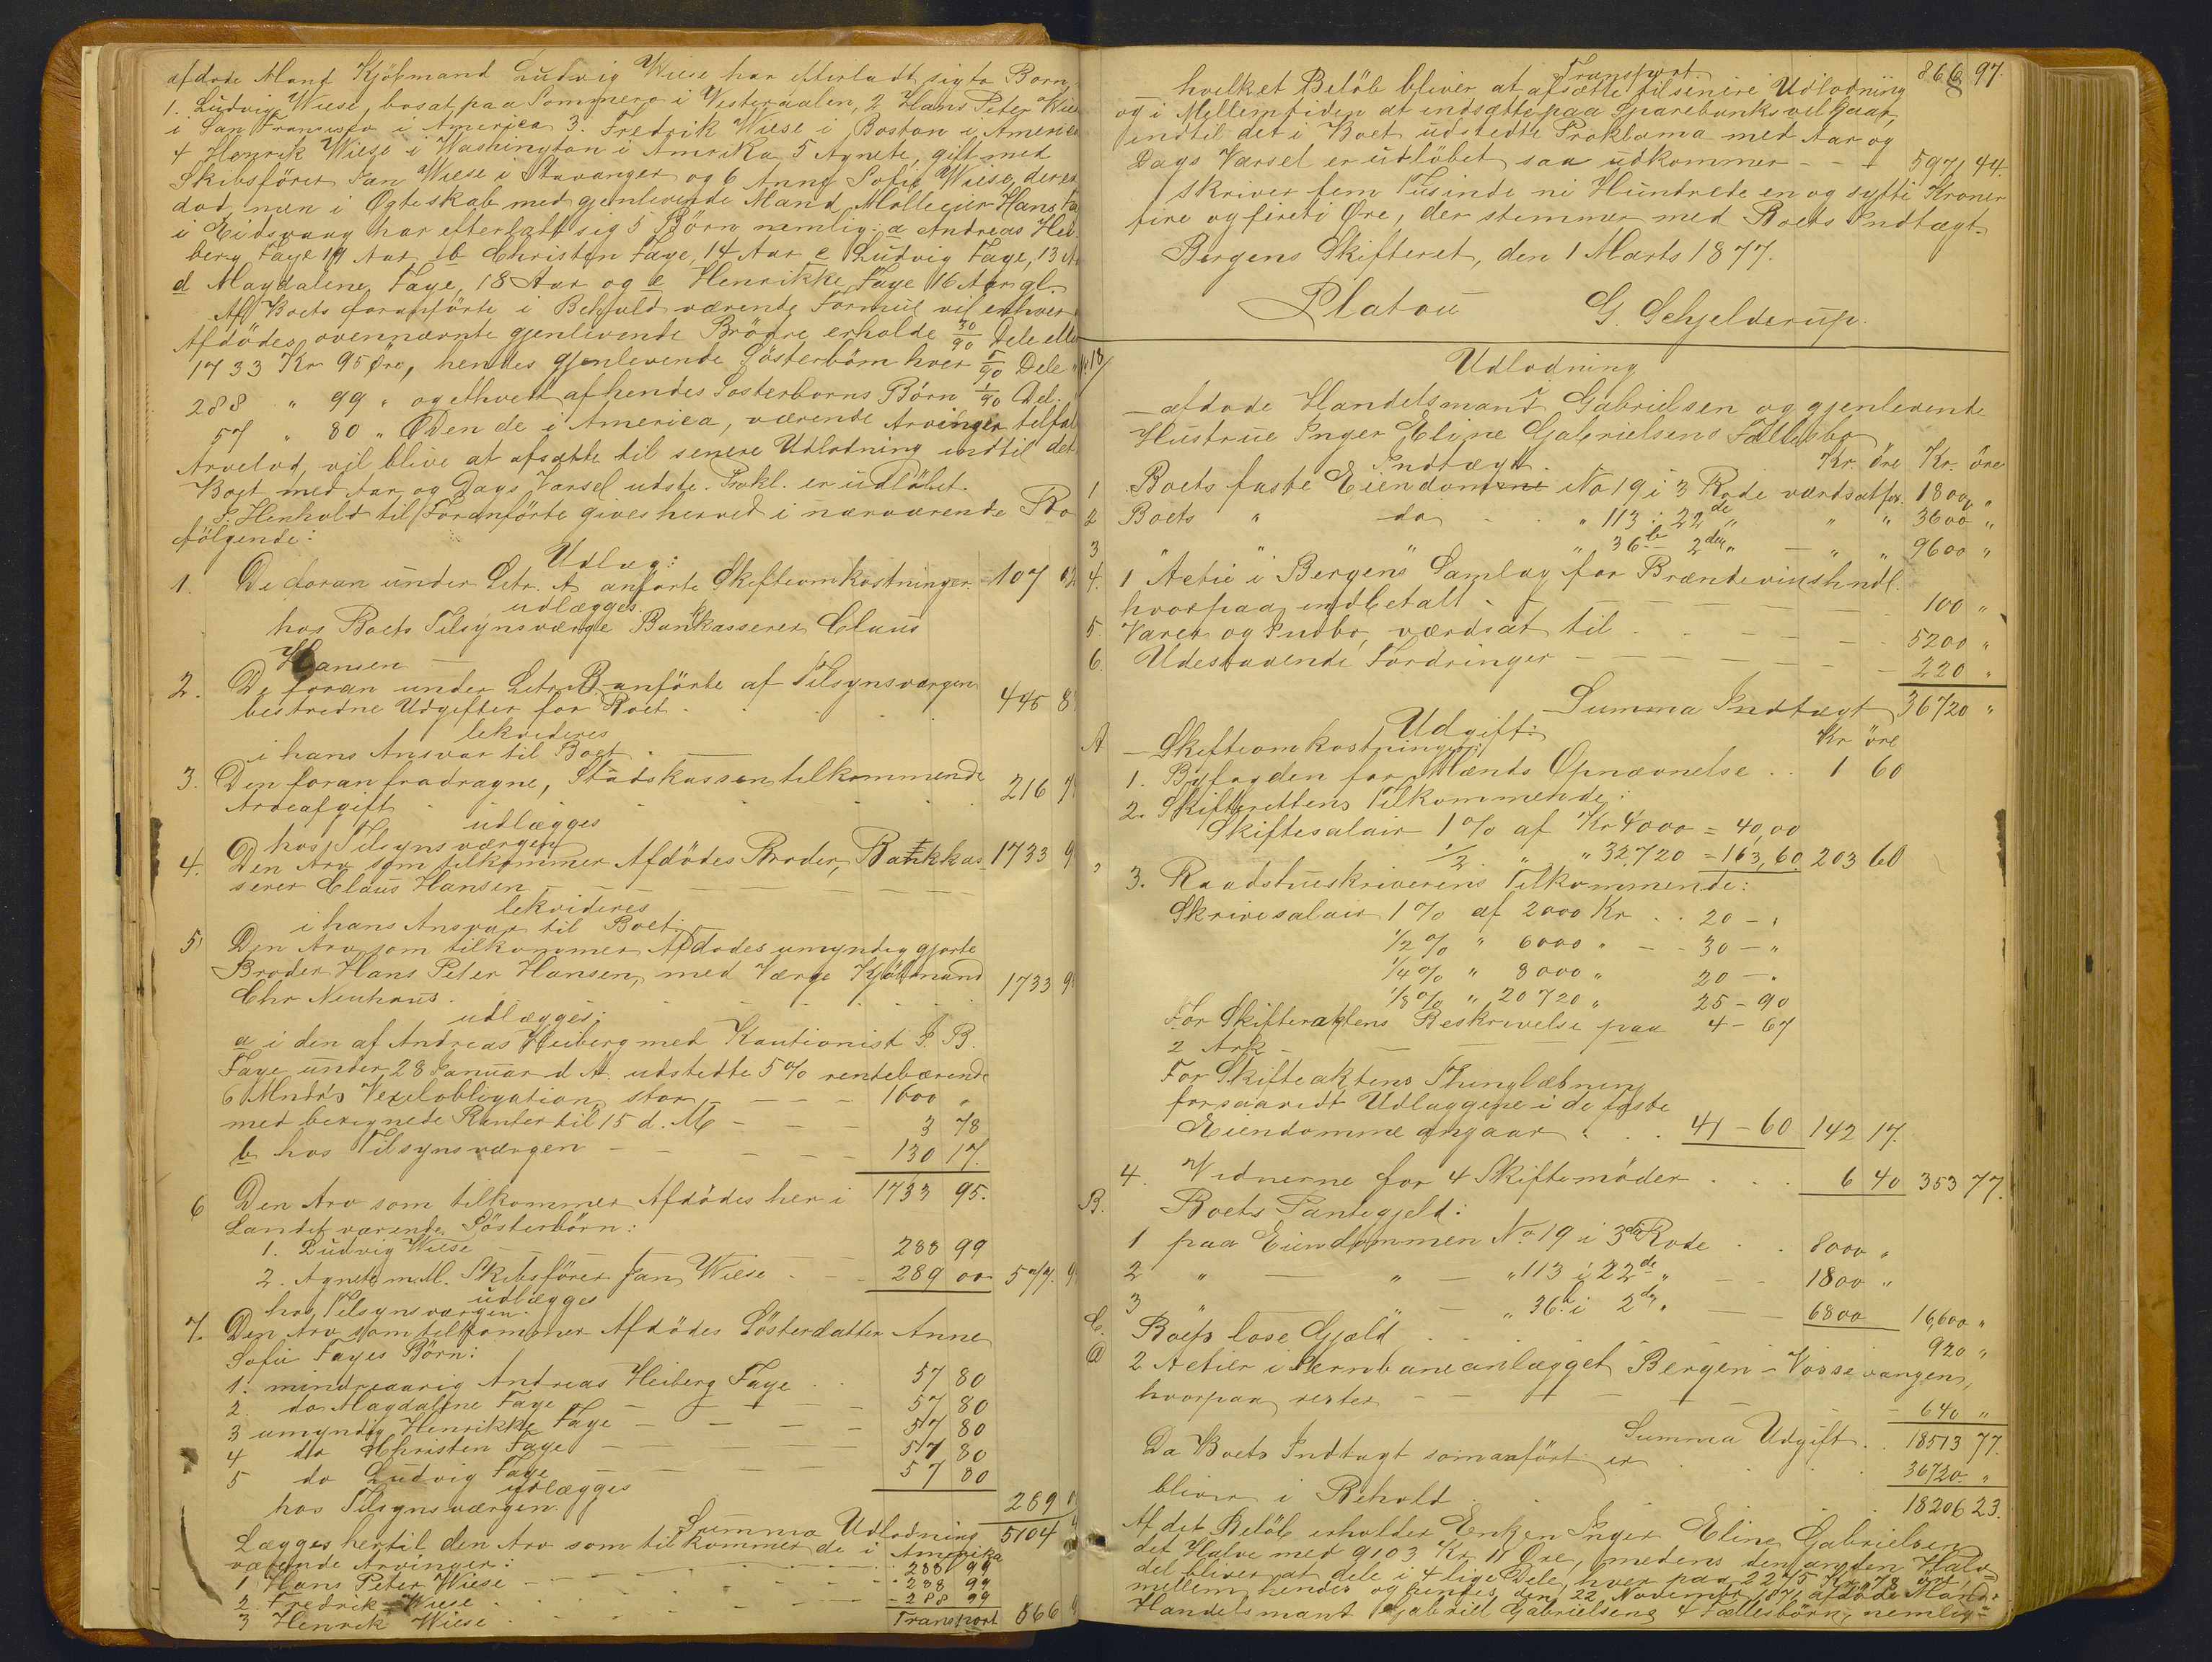 afdøde Mand Kjøbmand Ludvig Wiese har efterladt sig to Børn,
1. Ludvig Wiese, bosat paa Sommerø i Vesteraalen, 2 Hans Peter Wiese
i San Fransisco i America 3. Fredrik Wiese i Boston i America
4 Henrik Wiese i Washington i Amrika, 5 Agnete, gift med
Skibsfører Jan Wiese i Stavanger og 6 Anne Sofie Wiese, der er
død, men i Ægteskab med gjenlevende Mand Møllecur Hans Fa
i Eidsvaag har efterladt sig 5 Børn nemlig: a Andreas Hei
berg Faye 19 Aar b Christen Faye, 14 Aar c Ludvig Faye, 13 A
d Magdalene Faye, 18 Aar og e Henrikke Faye 16 Aar gl.
Af Boets foranførte i Behold værende Formue vil enhver
Afdødes ovennævnte gjenlevende Brødre erholde 30/90 Dele eller
1733 Kr 95 Øre, hendes gjenlevende Søsterbørn hver 5/90 Dele
288 " 99 " og ethvert af hendes Søsterbørns Børn 1/90 Del.
57 " 80 " Den de i America, værende Arvinger tilfal
Arvelod, vil blive at afsætte til senere Udlodning indtil det
Boet med Aar og Dags Varsel udste. Prokl. er udløbet.
I Henhold til Foranførte gives herved i nærværende Bo
følgende:
Udlæg:
1. De foran under Litr. A anførte Skifteomkostninger 107 62
udlægges
hos Boets Tilsynsværge Bankkasserer Claus
Hansen
2. De foran under Litr B anførte af Tilsynsværgen
bestredne Udgifter for Boet 445 8
lekvideres
i hans Ansvar til Boet
3. Den foran fradragne, Stadskassen tilkommende
Arveafgift 216 7
udlægges
hos Tilsynsværgen
4. Den Arv som tilkommer Afdødes Broder, Bankkas 1733 9
serer Claus Hansen
lekvideres
i hans Ansvar til Boet
5 Den Arv som tilkommer Afdødes umyndiggjorte
Broder Hans Peter Hansen, med Værge Kjøbmand
Chr Neuhaus 1733 9
udlægges:
a i den af Andreas Heiberg med Kautionist J. B.
Faye under 28 Januar d A. udstedte 5% rentebærende
6 Mndrs Vexelobligation, stor 1600 "
med beregnede Renter til 15 d. M 3 78
b hos Tilsynsværgen 130 17.
1733 95.
6 Den Arv som tilkommer Afdødes her i
Landet værende Søsterbørn:
1. Ludvig Wiese 288 99
2. Agnete m. M. Skibsfører Jan Wiese 289 00 577 9
udlægges
hos Tilsynsværgen
7. Den Arv som tilkommer Afdødes Søsterdatter Anne
Sofie Fayes Børn:
1. mindreaarig Andreas Heiberg Faye 57 80
2. do Magdalene Faye 57 80
3 umyndig Henrikke Faye 57 80
4 do Christen Faye 57 80
5 do Ludvig Faye 57 80
udlægges
hos Tilsynsværgen 289
Summa Udlodning 5104
Lægges hertil den Arv som tilkommer de i Amerika
værende Arvinger:
1 Hans Peter Wiese 288 99
2. Fredrik Wiese 288 99
3 Henrik Wiese 288 99
Transport 866
Transport 866 97.
hvilket Beløb bliver at afsætte til senere Udlodning
og i Mellemtiden at indsætte paa Sparebanks vilkaar,
indtil det i Boet udstedte Proklama med Aar og
Dags Varsel er udløbet, saa udkommer 5971 44.
skriver fem Tusinde ni Hundrede en og sytti Kroner
fire og fireti Øre, der stemmer med Boets Indtægt.
Bergens Skifteret, den 1 Marts 1877.
Platou G. Schjelderup.
No 13/
Udlodning
i
afdøde Handelsmand Gabrielsen og gjenlevende
Hustrue Inger Eline Gabrielsens Fællesbo
Indtægt. Kr. øre Kr. øre
1 Boets faste Eiendomme No 19 i 3 Rode værdsat for 1800, "
2 Boets " do " 113 i 22de " " " 3600 "
3 " " " 36b - 2den " " " 9600 "
4. 1 Actie i Bergens Samlag for Brændevinshndl.
hvorpaa indbetalt 100 "
5. Varer og Indbo, værdsat til 5200 "
6. Udestaaende Fordringer 220 "
Summa Indtægt 36720 "
Udgift:
A Skifteomkostninger: Kr øre
1. Byfogden for Mænds Opnævnelse 1 60
2. Skifterettens Tilkommende:
Skiftesalair 1% af Kr 4000 = 40,00
1/2 " " 32,720 = 163,60. 203 60
3. Raadstueskriverens Tilkommende:
Skrivesalair 1% af 2000 Kr 20 - "
1/2 % " 6000 " 30 - "
1/4 % " 8000 " 20 - "
1/8 % " 20720 " 25 - 90
For Skifteraktens Beskrivelse paa 4 - 67
2 Ark
For Skifteaktens Thinglæsning
forsaavidt Udlæggene i de faste
Eiendomme angaar 41 - 60 142 17.
4. Vidnerne for 4 Skiftemøder 6 40 353 77.
B. Boets Pantegjeld:
1 paa Eiendommen No 19 i 3die Rode 8000 "
2 " " " 113 i 22de " 1800 "
3 " " " 36b i 2den " 6800 16,600 "
C. Boets løse Gjæld 920 "
D 2 Actier i Jernbaneanlægget Bergen - Vossevangen,
hvorpaa rester 640 "
Summa Udgift 18513 77.
Da Boets Indtægt som anført er 36720 "
bliver i Behold 18206 23.
Af det Beløb erholder Enken Inger Eline Gabrielsen
det Halve med 9103 Kr 11 Øre, medens den anden Halv
del bliver at dele i 4 lige Dele, hver paa 2275 Kr 78 øre,
mellem hendes og hendes, den 22 November 1871 afdøde Mand:
Handelsmand Gabriel Gabrielsens 4 Fællesbørn, nemlig